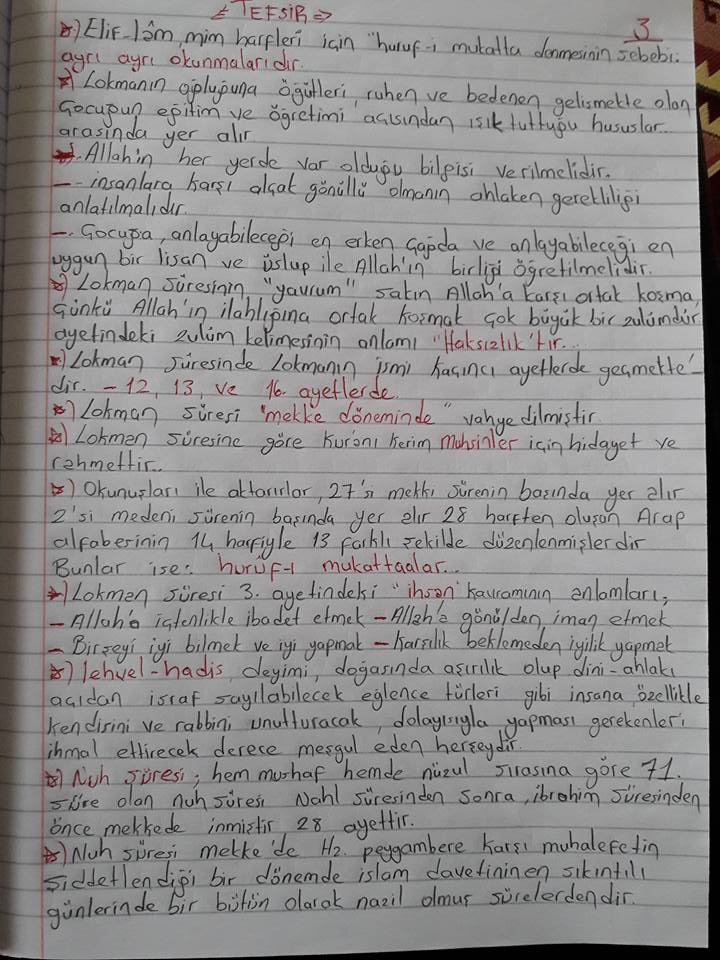 ← TEFSİR →
3
*) Elif-lâm, mim harfleri için "huruf-i mukatta denmesinin sebebi:
ayrı ayrı okunmalarıdır.
*) Lokmanın oğluğuna öğütleri, ruhen ve bedenen gelişmekte olan
Çocuğun eğitim ve öğretimi açısından ışık tuttuğu hususlar
arasında yer alır.
-. Allah'ın her yerde var olduğu bilgisi verilmelidir.
-- insanlara karşı alçak gönüllü olmanın ahlaken gerekliliği
anlatılmalıdır.
-. Çocuğsa, anlayabileceği en erken çağda ve anlayabileceği en
uygun bir lisan ve üslup ile Allah'ın birliği öğretilmelidir.
*) Lokman sûresinin "yavrum" sakın Allah'a karşı ortak koşma,
Çünkü Allah'ın ilahlığına ortak koşmak çok büyük bir zulümdür
ayetindeki zulüm kelimesinin anlamı "Haksızlık'tır...
*) Lokman sûresinde Lokmanın ismi kaçıncı ayetlerde geçmette'
dir. - 12, 13, ve 16. ayetlerde.
*) Lokman sûresi "mekke döneminde" vahyedilmiştir.
*) Lokman sûresine göre kuranı kerim muhsinler için hidayet ve
rahmettir..
*) Okunuşları ile aktarırlar, 27'si mekki sûrenin başında yer alır
2'si medeni sûrenin başında yer alır 28 harften oluşan Arap
alfabesinin 14 harfiyle 13 farklı şekilde düzenlenmişlerdir
Bunlar ise: hurûf-ı mukattaalar...
*) Lokman sûresi 3. ayetindeki "ihsan" kavramının anlamları;
- Allah'a içtenlikle ibadet etmek - Allah'a gönülden iman etmek
- Birşeyi iyi bilmek ve iyi yapmak - Karşılık beklemeden iyilik yapmak
*) lehvel-hadis, deyimi, doğasında aşırılık olup dini-ahlaki
açıdan israf sayılabilecek eğlence türleri gibi insana, özellikle
kendisini ve rabbini unutturacak, dolayısıyla yapması gerekenleri
ihmal ettirecek derece meşgul eden herşeydir.
*) Nuh sûresi; hem mushaf hemde nüzul sırasına göre 71.
sûre olan nuh sûresi Nahl sûresinden sonra, ibrahim sûresinden
önce mekkede inmiştir 28 ayettir.
*) Nuh sûresi mekke'de Hz. peygambere karşı muhalefetin
şiddetlendiği bir dönemde islam davetinin en sıkıntılı
günlerinde bir bütün olarak nazil olmuş sûrelerdendir.